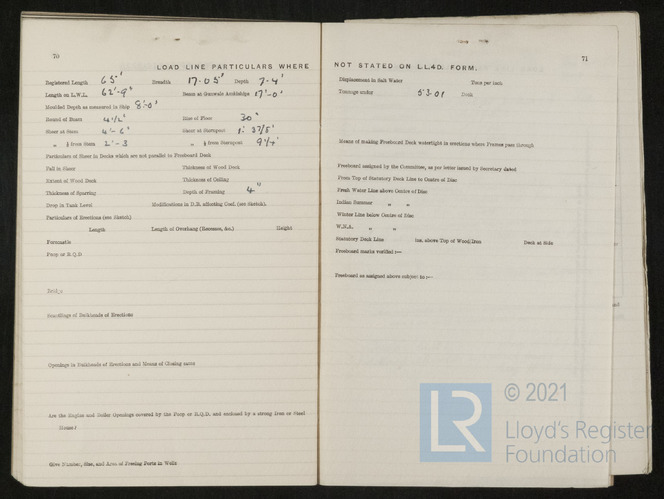 70
LOAD LINE PARTICULARS WHERE
Registered Length 65' Breadth 17.05' Depth 7.4'
Length on L.W.L. 62'-9" Beam at Gunwale Amidships 17'-0'
Moulded Depth as measured in Ship 8'-0'
Round of Beam 4½" Rise of Floor 30"
Sheer at Stem 4'-6" Sheer at Sternpost
" ⅛ from Stem 2'-3 " ⅛ from Sternpost
Particulars of Sheer in Decks which are not parallel to Freeboard Deck
Fall in Sheer Thickness of Wood Deck
Extent of Wood Deck Thickness of Ceiling
Thickness of Sparring Depth of Framing 4"
Drop in Tank Level Modifications in D.B. affecting Coef. (see Sketch).
Particulars of Erections (see Sketch)
Length Length of Overhang (Recesses, &c.) Height
Forecastle
Poop or R.Q.D
Scantlings of Bulkheads of Erections
Openings in Bulkheads of Erections and Means of Closing same
Are the Engine and Boiler Openings covered by the Poop or R.Q.D. and enclosed by a strong Iron or Steel
House?
Give Number, Size, and Area of Freeing Ports in Wells
71
NOT STATED ON LL4D. FORM.
Displacement in Salt Water Tons per inch
Tonnage under 53.01 Deck
Means of making Freeboard Deck watertight in erections where Frames pass through
Freeboard assigned by the Committee, as per letter issued by Secretary dated
From Top of Statutory Deck Line to Centre of Disc
Fresh Water Line above Centre of Disc
Indian Summer " "
Winter Line below Centre of Disc
W.N.A. " "
Statutory Deck Line ins. above Top of Wood/Iron Deck at Side
Freeboard marks verified :—
Freeboard as assigned above subject to :—
LR
© 2021
Lloyd's Register
Foundation